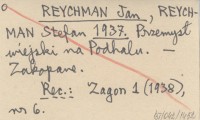 REYCHMAN Jan, REYCH-
MAN Stefan 1937. Przemysł
wiejski na Podhalu. –
Zakopane.
Rec.: Zagon 1 (1938),
nr 6.